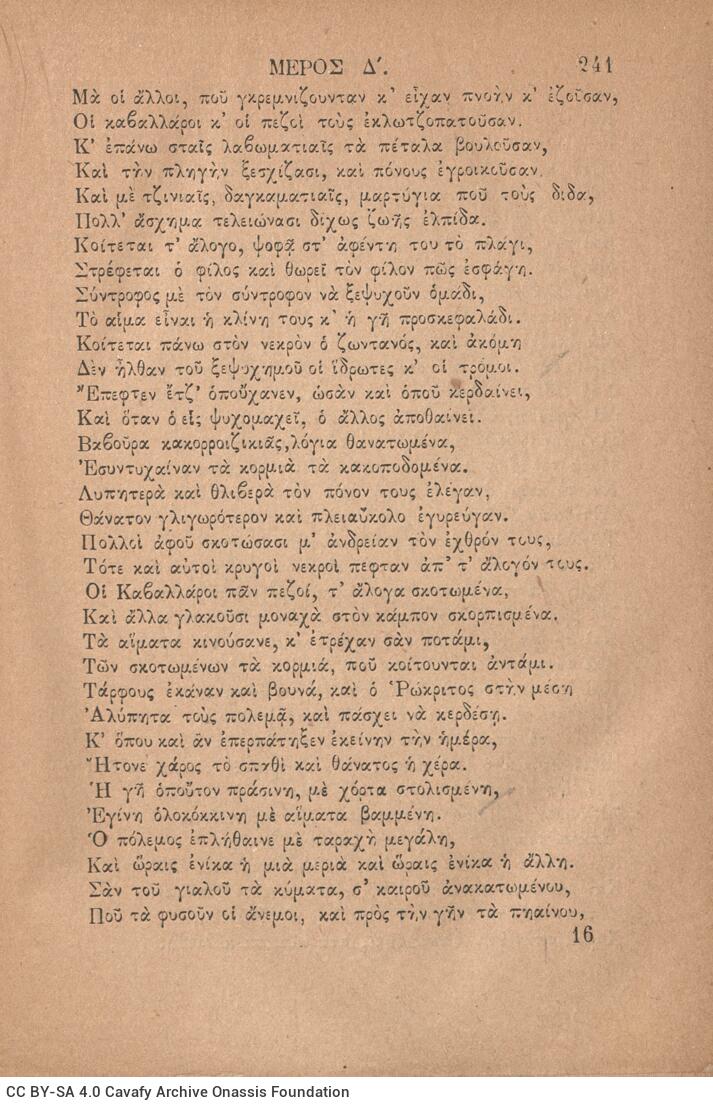 ΜΕΡΟΣ Δ΄. 241
Μὰ οἱ ἄλλοι, ποῦ γκρεμνιζουνταν κ' εἶχαν πνοὴν κ' ἐζοῦσαν,
Οἱ καβαλλάροι κ' οἱ πεζοὶ τοὺς ἐκλωτζοπατοῦσαν.
Κ' ἐπάνω σταῖς λαβωματιαῖς τὰ πέταλα βουλοῦσαν,
Καὶ τὴν πληγὴν ξεσχίζασι, καὶ πόνους ἐγροικοῦσαν.
Καὶ μὲ τζινιαῖς, δαγκαματιαῖς, μαρτύγια ποῦ τοὺς διδα,
Πολλ' ἄσχημα τελειώνασι δίχως ζωῆς ἐλπίδα.
Κοίτεται τ' ἄλογο, ψοφᾷ στ' ἀφέντη του τὸ πλάγι,
Στρέφεται ὁ φίλος καὶ θωρεῖ τὸν φίλον πῶς ἐσφάγη.
Σύντροφος μὲ τὸν σύντροφον νὰ ξεψυχοῦν ὁμάδι,
Τὸ αἷμα εἶναι ἡ κλίνη τους κ' ἡ γῆ προσκεφαλάδι.
Κοίτεται πάνω στὸν νεκρὸν ὁ ζωντανός, καὶ ἀκόμη
Δὲν ἦλθαν τοῦ ξεψυχημοῦ οἱ ἵδρωτες κ' οἱ τρόμοι.
Ἔπεφτεν ἔτζ' ὁποὖχανεν, ὡσὰν καὶ ὁποῦ κερδαίνει,
Καὶ ὅταν ὁ εἷς ψυχομαχεῖ, ὁ ἄλλος ἀποθαίνει.
Βαβοῦρα κακορροιζικιᾶς, λόγια θανατωμένα,
Ἐσυντυχαίναν τὰ κορμιὰ τὰ κακοποδομένα.
Λυπητερὰ καὶ θλιβερὰ τὸν πόνον τους ἐλέγαν,
Θάνατον γλιγωρότερον καὶ πλειαὔκολο ἐγυρεύγαν.
Πολλοὶ ἀφοῦ σκοτώσασι μ' ἀνδρείαν τὸν ἐχθρόν τους,
Τότε καὶ αὐτοὶ κρυγοὶ νεκροὶ πεφταν ἀπ' τ' ἄλογόν τους.
Οἱ Καβαλλάροι πᾶν πεζοί, τ' ἄλογα σκοτωμένα,
Καὶ ἄλλα γλακοῦσι μοναχὰ στὸν κάμπον σκορπισμένα.
Τὰ αἵματα κινούσανε, κ' ἐτρέχαν σὰν ποτάμι,
Τῶν σκοτωμένων τὰ κορμιά, ποῦ κοίτουνται ἀντάμι.
Τάρφους ἐκάναν καὶ βουνά, καὶ ὁ Ῥώκριτος στὴν μέση
Ἀλύπητα τοὺς πολεμᾷ, καὶ πάσχει νὰ κερδέση.
Κ' ὅπου καὶ ἂν ἐπερπάτηξεν ἐκείνην τὴν ἡμέρα,
Ἤτονε χάρος τὸ σπαθὶ καὶ θάνατος ἡ χέρα.
Ἡ γῆ ὁποῦτον πράσινη, μὲ χόρτα στολισμένη,
Ἐγίνη ὁλοκόκκινη μὲ αἵματα βαμμένη.
Ὁ πόλεμος ἐπλήθαινε μὲ ταραχὴ μεγάλη,
Καὶ ὥραις ἐνίκα ἡ μιὰ μεριὰ καὶ ὥραις ἐνίκα ἡ ἄλλη.
Σὰν τοῦ γιαλοῦ τὰ κύματα, σ' καιροῦ ἀνακατωμένου,
Ποῦ τὰ φυσοῦν οἱ ἄνεμοι, καὶ πρὸς τὴν γῆν τὰ πηαίνου,
16
CC BY-SA 4.0 Cavafy Archive Onassis Foundation